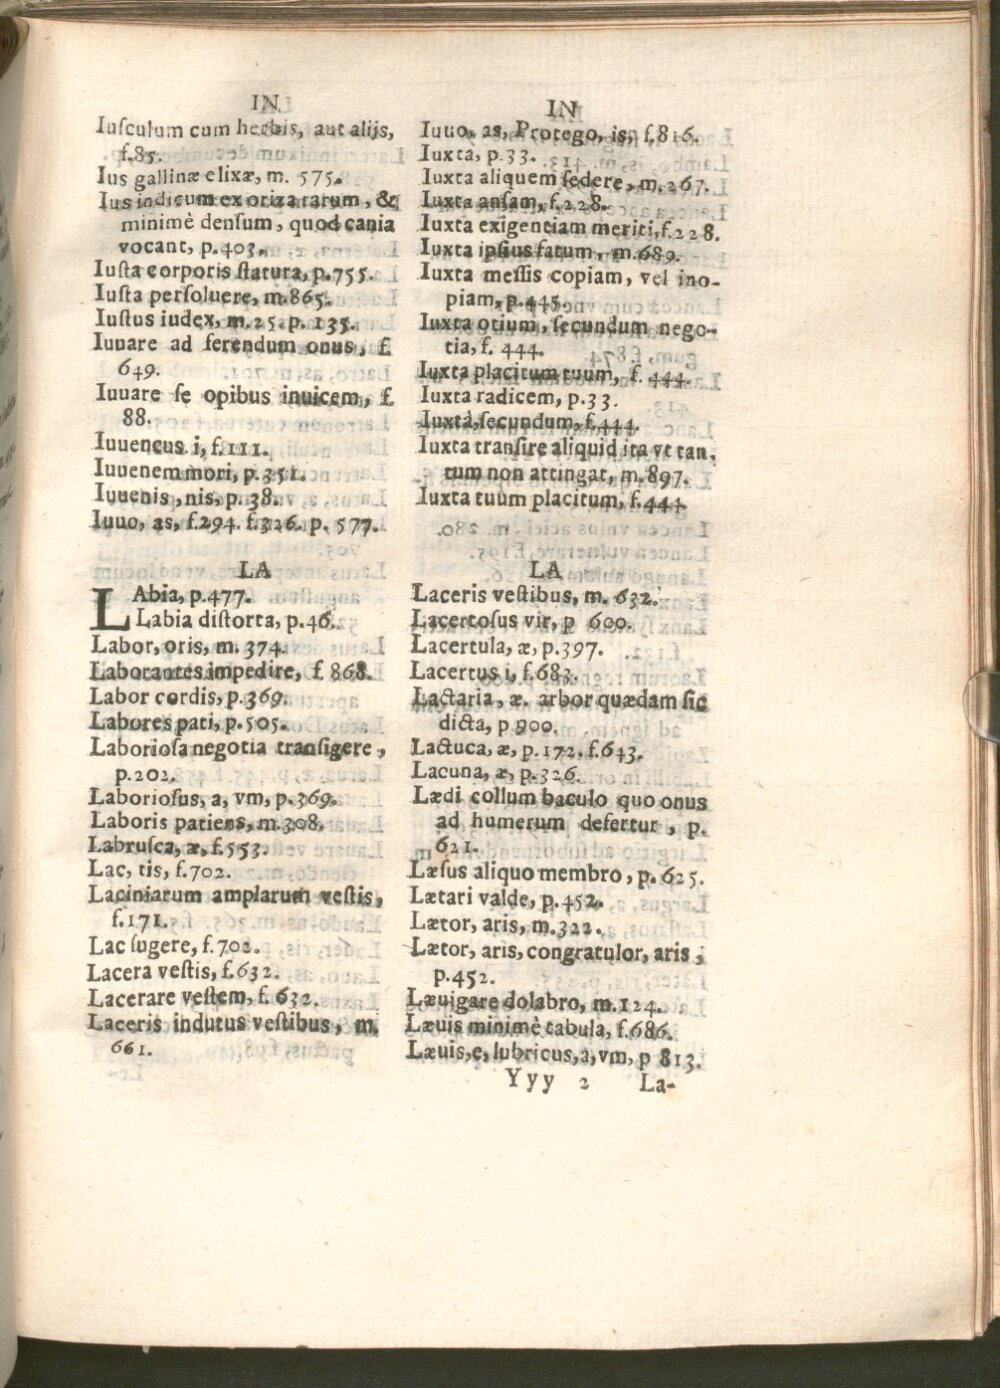 IN
Iuſculum cum herbis, aut alijs,
f.85.
Ius gallinæ elixæ, m. 575.
Ius indicum ex oriza rarum, &
minimè denſum, quod cania
vocant, p.403.
Iuſta corporis ſtatura, p.755.
Iuſta perſoluere, m.865.
Iuſtus iudex, m.25. p. 135.
Iuuare ad ferendum onus, f.
649.
Iuuare ſe opibus inuicem, f.
88.
Iuuencus i, f.111.
Iuuenem mori, p.351.
Iuuenis, nis, p.38.
Iuuo, as, f.294. f.326. p. 577.
LA
LAbia, p.477.
Labia diſtorta, p.46.
Labor, oris, m. 374.
Laborantes impedire, f. 868.
Labor cordis, p.369.
Labores pati, p.505.
Laborioſa negotia tranſigere,
p.202.
Laborioſus, a, vm, p.369.
Laboris patiens, m.308.
Labruſca, æ, f.553.
Lac, tis, f.702.
Laciniarum amplarum veſtis,
f.171.
Lac ſugere, f.702.
Lacera veſtis, f.632.
Lacerare veſtem, f. 632.
Laceris indutus veſtibus, m.
661.
IN
Iuuo, as, Protego, is, f.816.
Iuxta, p.33.
Iuxta aliquem ſedere, m.267.
Iuxta anſam, f.228.
Iuxta exigentiam meriti, f.228.
Iuxta ipſius fatum, m.689.
Iuxta meſſis copiam, vel ino-
piam, p.445.
Iuxta otium, ſecundum nego-
tia, f. 444.
Iuxta placitum tuum, f. 444.
Iuxta radicem, p.33.
Iuxtà, ſecundum, f.444.
Iuxta tranſire aliquid ita vt tan.
tum non attingat, m.897.
Iuxta tuum placitum, f.444.
LA
Laceris veſtibus, m. 632.
Lacertoſus vir, p 600.
Lacertula, æ, p.397.
Lacertus i, f.683.
Lactaria, æ. arbor quædam ſic
dicta, p 900.
Lactuca, æ, p.172. f.643.
Lacuna, æ, p.326.
Lædi collum baculo quo onus
ad humerum defertur, p.
621.
Læſus aliquo membro, p.625.
Lætari valde, p.452.
Lætor, aris, m.322.
Lætor, aris, congratulor, aris,
p.452.
Læuigare dolabro, m.124.
Læuis minimè tabula, f.686.
Læuis, e, lubricus, a, vm, p 813.
Yyy 2 La-